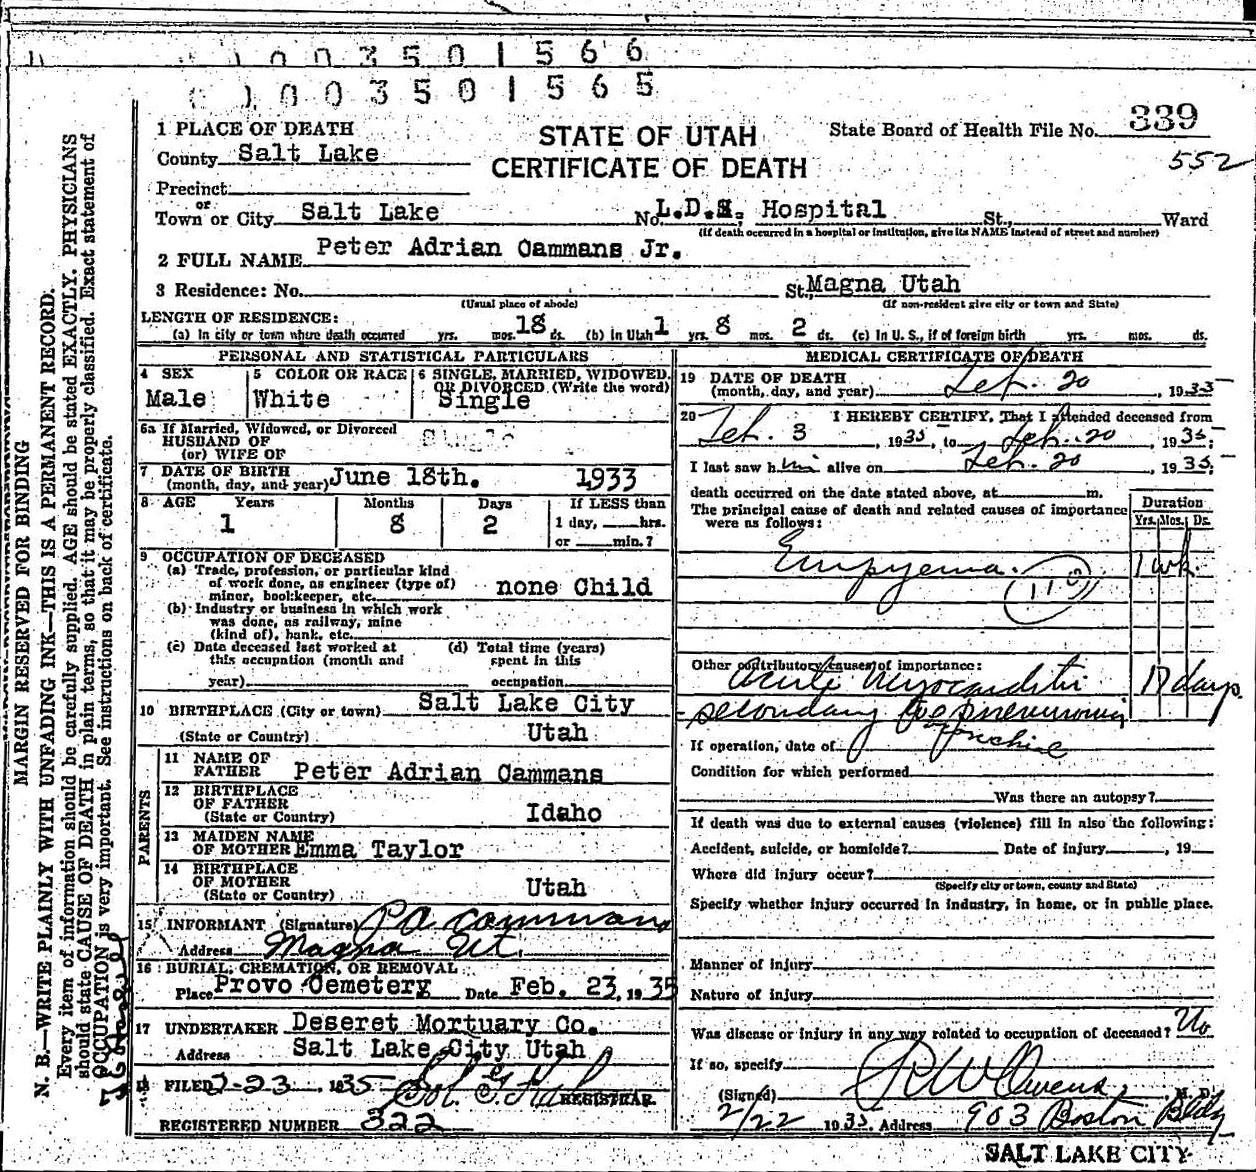 0 0 3 5 0 1 5 6 6
0 0 3 5 0 1 5 6 5
STATE OF UTAH
CERTIFICATE OF DEATH
State Board of Health File No. 339
552
1 PLACE OF DEATH
County Salt Lake
Precinct
or
Town or City Salt Lake No. L.D.S. Hospital St., Ward
(If death occurred in a hospital or institution, give its NAME instead of street and number)
2 FULL NAME Peter Adrian Cammans Jr.
3 Residence: No. St. Magna Utah
(Usual place of abode) (If non-resident give city or town and State)
LENGTH OF RESIDENCE:
(a) In city or town where death occurred yrs. mos. 18 ds. (b) in Utah 1 yrs. 8 mos. 2 ds. (c) In U. S., if of foreign birth yrs. mos. ds.
PERSONAL AND STATISTICAL PARTICULARS
4 SEX
Male
5 COLOR OR RACE
White
6 SINGLE, MARRIED, WIDOWED,
OR DIVORCED (Write the word)
Single
6a If Married, Widowed, or Divorced
HUSBAND OF
(or) WIFE OF
Single
7 DATE OF BIRTH
(month, day, and year) June 18th. 1933
8 AGE Years Months Days If LESS than
1 8 2 1 day, hrs.
or min.?
9 OCCUPATION OF DECEASED
(a) Trade, profession, or particular kind
of work done, as engineer (type of)
minor, bookkeeper, etc. none Child
(b) Industry or business in which work
was done, as railway, mine
(kind of), bank, etc.
(c) Date deceased last worked at
this occupation (month and
year)
(d) Total time (years)
spent in this
occupation
10 BIRTHPLACE (City or town) Salt Lake City
(State or Country) Utah
PARENTS
11 NAME OF
FATHER Peter Adrian Cammans
12 BIRTHPLACE
OF FATHER
(State or Country) Idaho
13 MAIDEN NAME
OF MOTHER Emma Taylor
14 BIRTHPLACE
OF MOTHER
(State or Country) Utah
15 INFORMANT (Signature) P A Cammans
Address Magna Ut.
16 BURIAL, CREMATION, OR REMOVAL
Place Provo Cemetery Date Feb. 23, 1935
17 UNDERTAKER Deseret Mortuary Co.
Address Salt Lake City Utah
18 FILED 2-23 1935
REGISTRAR
REGISTERED NUMBER 322
MEDICAL CERTIFICATE OF DEATH
19 DATE OF DEATH
(month, day, and year) Feb. 20, 1935
20 I HEREBY CERTIFY, That I attended deceased from
Feb. 3, 1935, to Feb. 20, 1935;
I last saw him alive on Feb. 20, 1935;
death occurred on the date stated above, at m.
The principal cause of death and related causes of importance
were as follows:
Duration
Yrs. Mos. Ds.
Empyema. 1 wk.
Other contributory causes of importance:
Acute Myocarditis 17 days.
secondary to pneumonia
Bronchial
If operation, date of
Condition for which performed
Was there an autopsy?
If death was due to external causes (violence) fill in also the following:
Accident, suicide, or homicide? Date of injury , 19
Where did injury occur?
(Specify city or town, county and State)
Specify whether injury occurred in industry, in home, or in public place.
Manner of injury
Nature of injury
Was disease or injury in any way related to occupation of deceased? No
If so, specify
(Signed) R W Owens, M. D.
2/22 1935. Address 903 Boston Bldg
SALT LAKE CITY
MARGIN RESERVED FOR BINDING
N. B.—WRITE PLAINLY WITH UNFADING INK—THIS IS A PERMANENT RECORD.
Every item of information should be carefully supplied. AGE should be stated EXACTLY. PHYSICIANS
should state CAUSE OF DEATH in plain terms, so that it may be properly classified. Exact statement of
OCCUPATION is very important. See instructions on back of certificate.